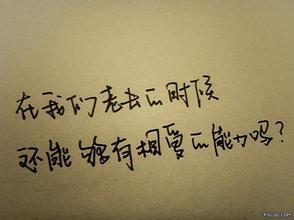 在我们老去的时候
还能够有相爱的能力吗?